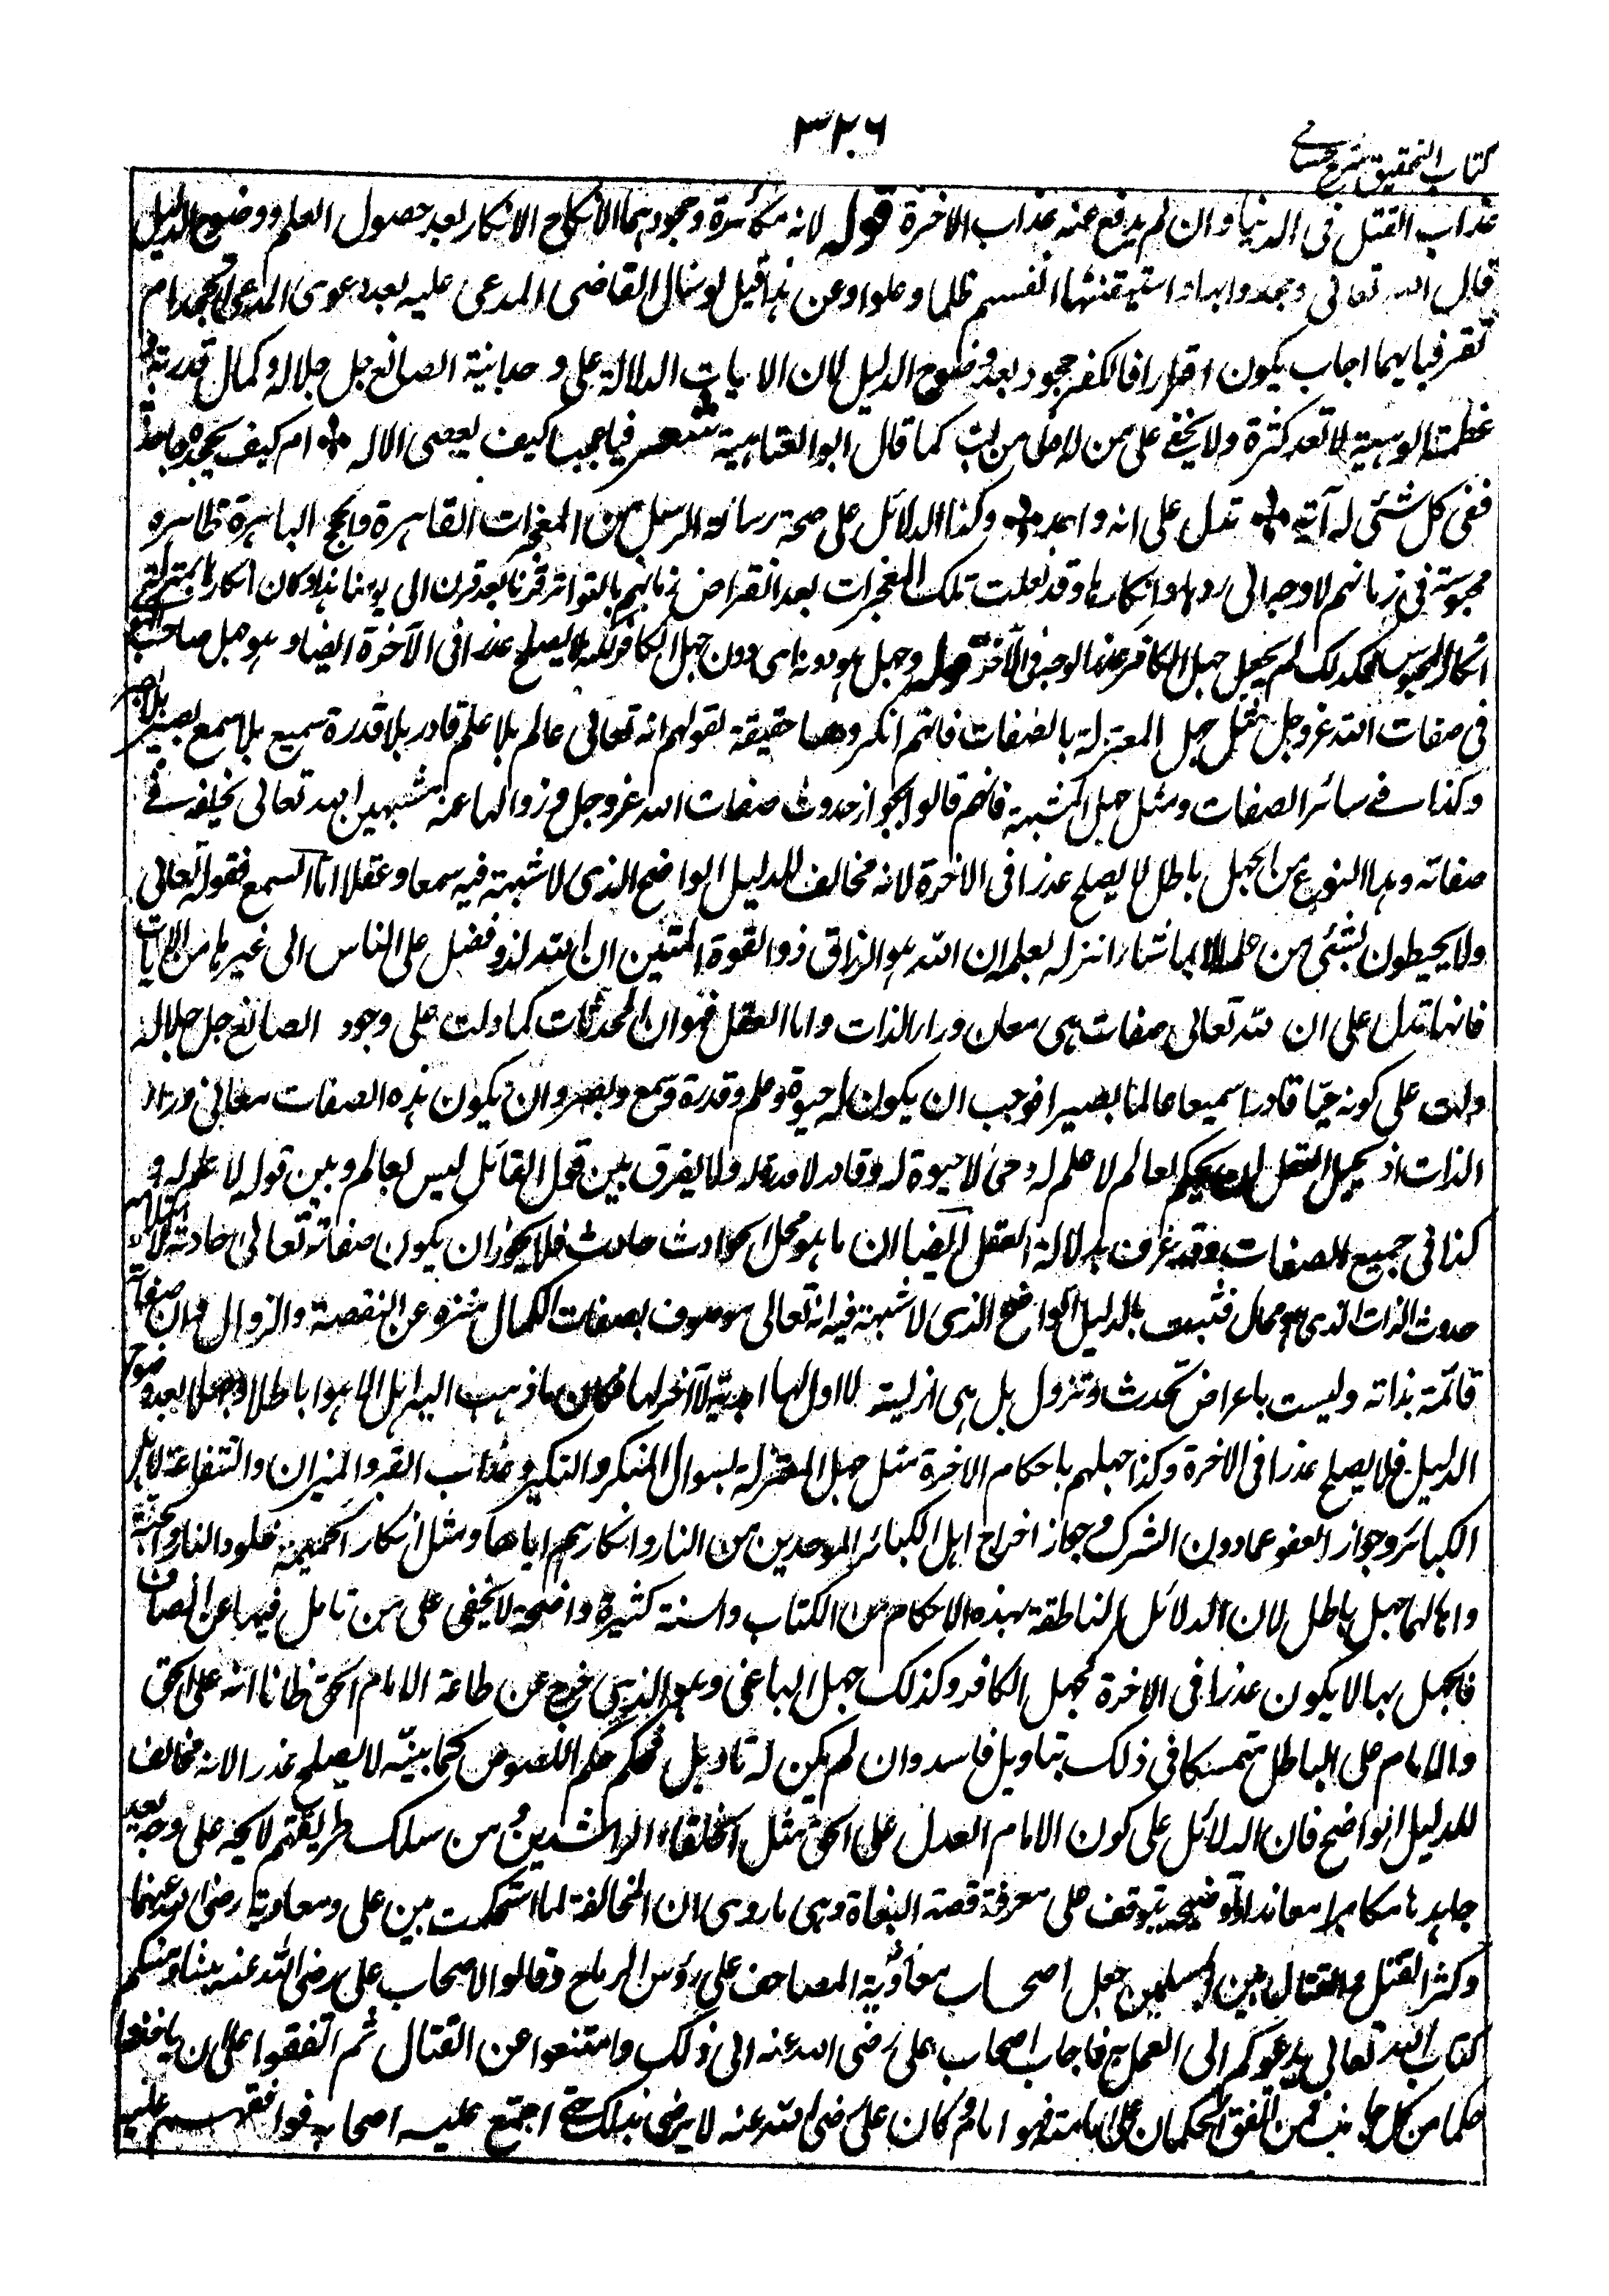 ٣٢٦
كتاب التحقيق شرح حسامي
عذاب القتل فى الدنيا وان لم يدفع عنه عذاب الاخرة قوله لانه مكابرة وجحود هما الانكار بعد حصول العلم ووضوح الدليل
قال الله تعالى وجحدوا بها واستيقنتها انفسهم ظلما وعلوا وعن هذا قيل لو سال القاضى المدعى عليه بعد دعوى المدعى اتجحد ام
تقر فبايهما اجاب يكون اقرارا فالكفر جحود بعد وضوح الدليل لان الايات الدلالة على وحدانية الصانع جل جلاله وكمال قدرته و
عظمة الوهيته لا تعد كثرة ولا يخفى على من له ادنى لب كما قال ابو العتاهية شعر فيا عجبا كيف يعصى الاله ⁘ ام كيف يجحده جاحد
ففى كل شئى له آية ⁘ تدل على انه واحد ⁘ وكذا الدلائل على صحة رسالة الرسل من المعجزات القاهرة والحجج الباهرة ظاهرة
محسوسة فى زمانهم لا وجه الى ردها وانكارها وقد نقلت تلك المعجزات بعد انقراض زمانهم بالتواتر قرنا بعد قرن الى يومنا هذا وكان انكارها بمنزلة
انكار المحسوس فكذلك لم يجعل جهل الكافر عذرا بوجه فى الآخرة قوله وجهل هو دونه اى دون جهل الكافر لكنه لا يصلح عذرا فى الآخرة ايضا وهو جهل صاحب الهوى
فى صفات الله عز وجل مثل جهل المعتزلة بالصفات فانهم انكروها حقيقة لقولهم انه تعالى عالم بلا علم قادر بلا قدرة سميع بلا سمع بصير بلا بصر
وكذا فے سائر الصفات ومثل جهل المشبهة فانهم قالوا بجواز حدوث صفات الله عز وجل وزوالها عنه مشبهين الله تعالى بخلقه فے
صفاته وهذا النوع من الجهل باطل لا يصلح عذرا فى الاخرة لانه مخالف للدليل الواضح الذى لا شبهة فيه سمعا وعقلا اما السمع فقوله تعالى
ولا يحيطون بشئى من علمه الا بما شاء انزله بعلمه ان الله هو الرزاق ذو القوة المتين ان الله لذو فضل على الناس الى غيرها من الايات
فانها تدل على ان لله تعالى صفات هى معان وراء الذات واما العقل فهو ان المحدثات كما دلت على وجود الصانع جل جلاله
دلت على كونه حيا قادرا سميعا عالما بصيرا فوجب ان يكون له حيوة وعلم وقدرة وسمع وبصر وان يكون هذه الصفات معانى وراء
الذات اذ يحيل العقل ان يحكم بعالم لا علم له وحى لا حيوة له وقادر لا قدرة له ولا يفرق بين قول القائل ليس بعالم وبين قوله لا علم له و
كذا فى جميع الصفات وقد عرف بدلالة العقل ايضا ان ما هو محل الحوادث حادث فلا يجوز ان يكون صفاته تعالى حادثة
حدوث الذات الذى هو محال فثبت بالدليل الواضح الذى لا شبهة فيه انه تعالى موصوف بصفات الكمال منزه عن النقيصة والزوال وان صفاته
قائمة بذاته وليست باعراض تحدث وتزول بل هى ازلية لا اول لها ابدية لا آخر لها فكان ما ذهب اليه اهل الاهواء باطلا وجهلا بعد وضوح
الدليل فلا يصلح عذرا فى الاخرة وكذا جهلهم باحكام الاخرة مثل جهل المعتزلة بسوال المنكر والنكير وعذاب القبر والميزان والشفاعة لاهل
الكبائر وجواز العفو عما دون الشرك وجواز اخراج اهل الكبائر الموحدين من النار وانكارهم اياها ومثل انكار الجهمية خلود النار والجنة
واهاليهما جهل باطل لان الدلائل الناطقة بهذه الاحكام من الكتاب والسنة كثيرة واضحة لا يخفى على من تامل فيها عن انصاف
فالجهل بها لا يكون عذرا فى الاخرة كجهل الكافر وكذلك جهل الباغى وهو الذى خرج عن طاعة الامام الحق ظانا انه على الحق
والامام على الباطل متمسكا فى ذلك بتاويل فاسد وان لم يكن له تاويل فحكمه حكم اللصوص كما بينه لا يصلح عذرا لانه مخالف
للدليل الواضح فان الدلائل على كون الامام العدل على الحق مثل الخلفاء الراشدين ومن سلك طريقتهم لائحة على وجه يعد
جاحدها مكابرا معاندا وتوضيحه يتوقف على معرفة قصة البغاة وهى ما روى ان المخالفة لما استحكمت بين على ومعاوية رضى الله عنهما
وكثر القتل والقتال بين المسلمين جعل اصحاب معاوية المصاحف على رؤس الرماح وقالوا لاصحاب على رضى الله عنه بيننا وبينكم
كتاب الله تعالى يدعوكم الى العمل به فاجاب اصحاب على رضى الله عنه الى ذلك وامتنعوا عن القتال ثم اتفقوا على ان ياخذوا
حكما من كل جانب فمن اتفق الحكمان على امامته فهو امام وكان على رضى الله عنه لا يرضى بذلك حتى اجتمع عليه اصحابه فوافقهم عليه